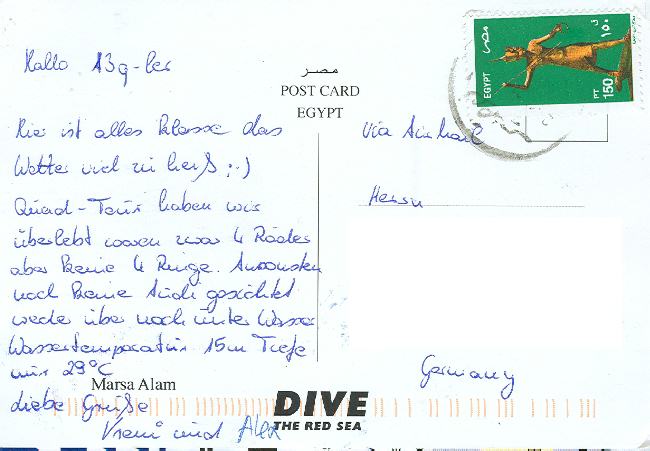 Hallo A3q-ler
Hier ist alles Klasse das
Wetter viel zu heiß ;-)
Quad-Tour haben wir
überlebt waren zwar 4 Räder
aber keine 4 Ringe. Ansonsten
noch keine Audi gesichtet
weder über noch unter Wasser
Wassertemperatur 15m Tiefe
nur 29°C
Liebe Grüße
Vreni und Alex
Marsa Alam
مصر
POST CARD
EGYPT
Via Airmail
Herrn
Germany
DIVE
THE RED SEA
EGYPT
مصر
١٥٠
PT 150